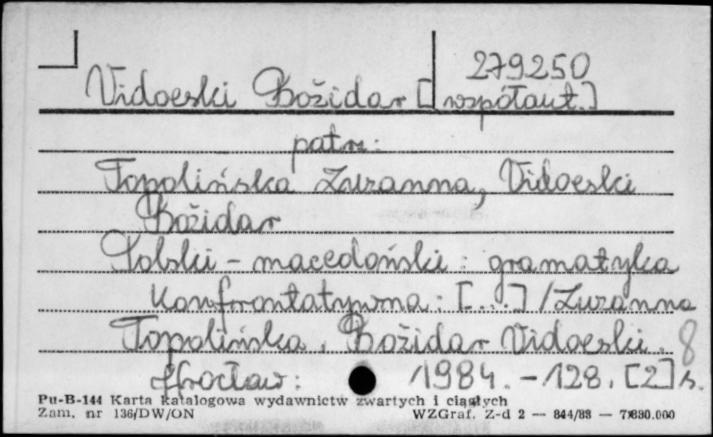 279250
Vidoeski Božidar [współaut.]
patrz:
Topolińska Zuzanna, Vidoeski
Božidar
Polski - macedoński : gramatyka
konfrontatywna : [...] / Zuzanna
Topolińska, Božidar Vidoeski. 8
Wrocław : 1984. - 128, [2] s.
Pu-B-144 Karta katalogowa wydawnictw zwartych i ciągłych
Zam. nr 136/DW/ON WZGraf. Z-d 2 — 844/83 — 7.830.000